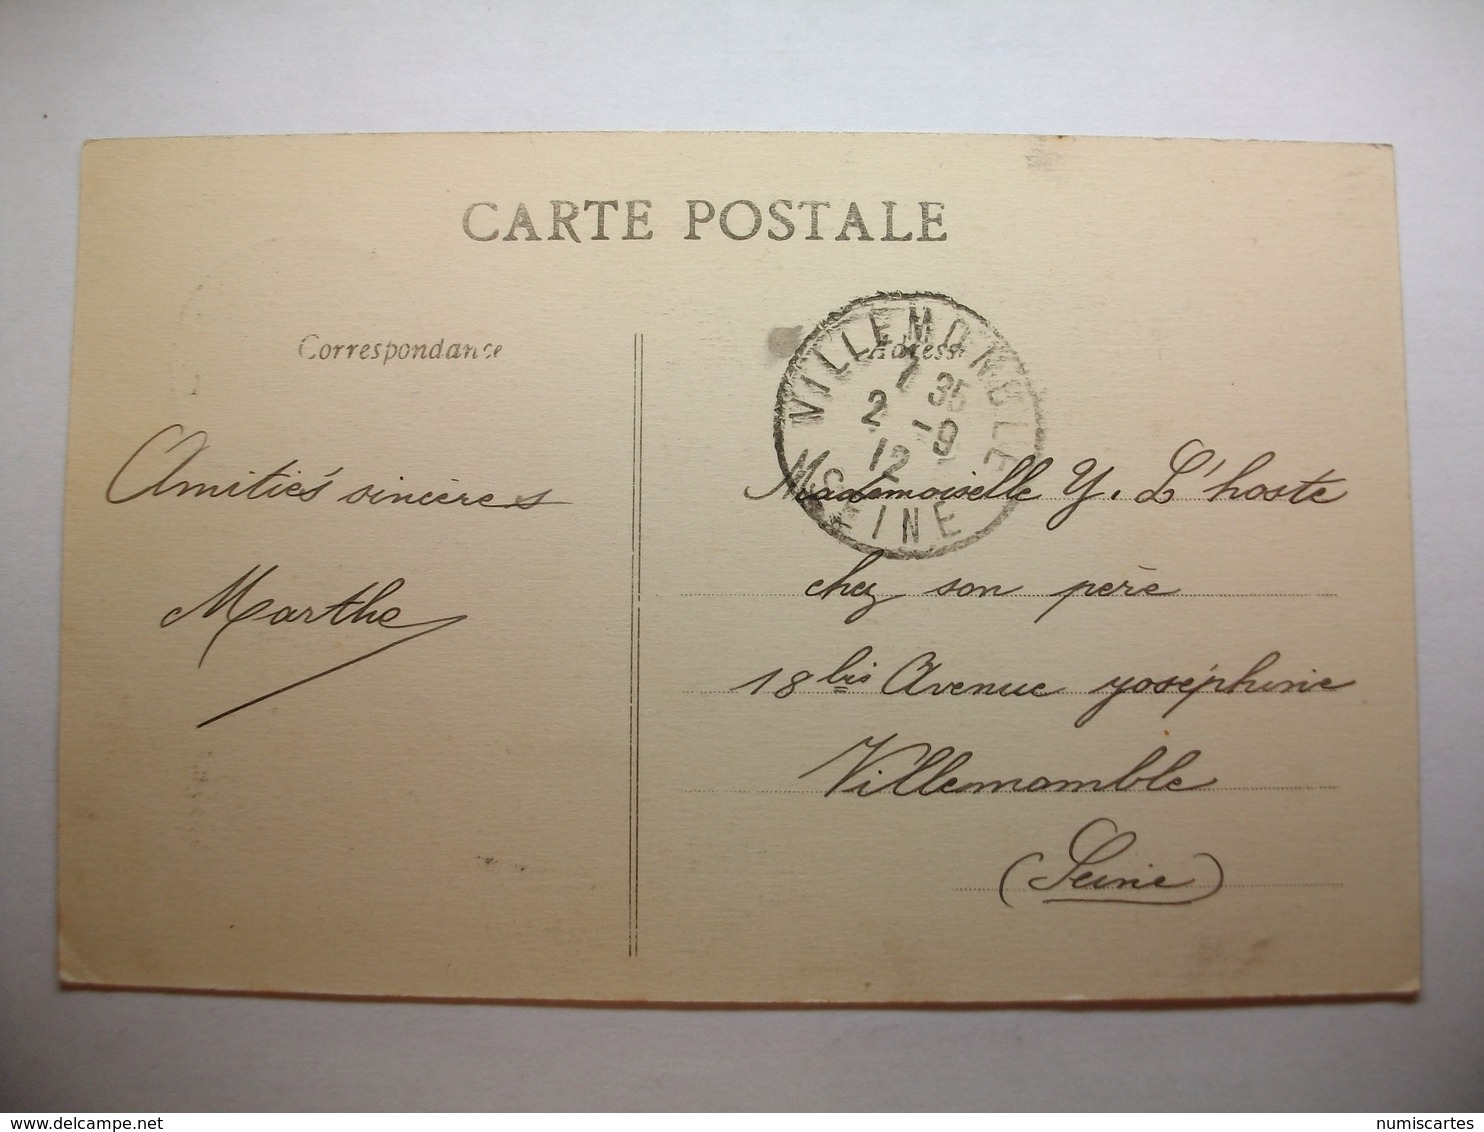 CARTE POSTALE
Correspondance
Adresse
VILLEMOMBLE
7 35
2 -9
12
SEINE
Amitiés sincères
Marthe
Mademoiselle Y. L'hoste
chez son père
18 bis Avenue Joséphine
Villemomble
(Seine)
www.delcampe.net
numiscartes